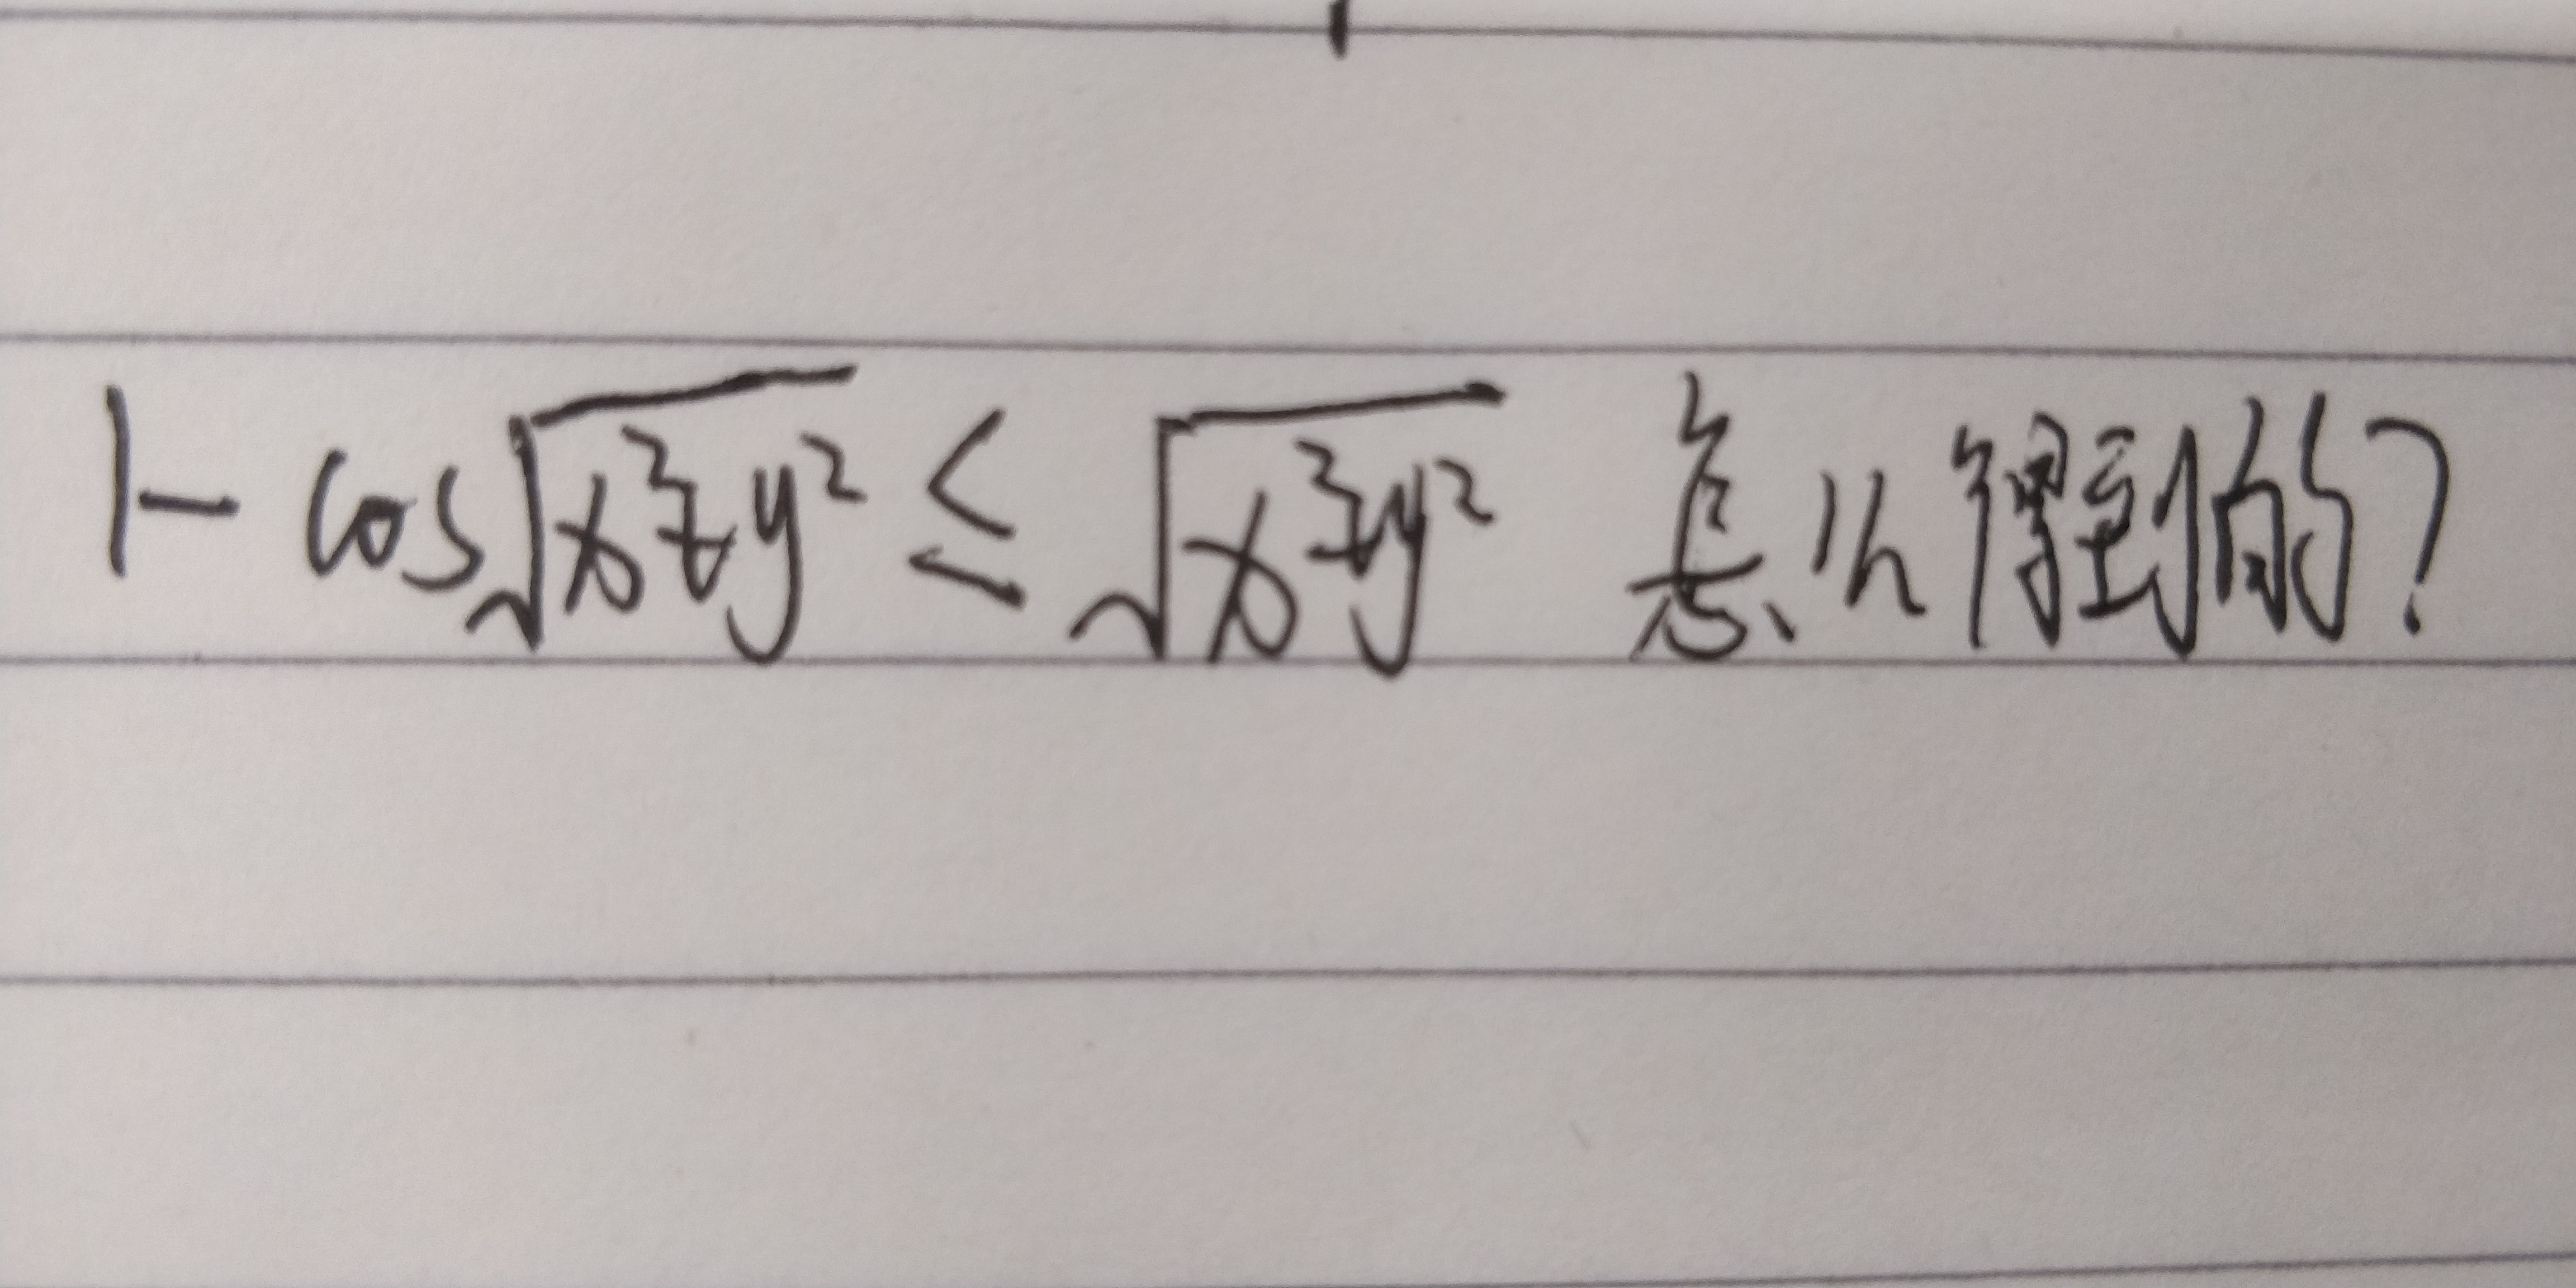 1-cos√(x²+y²) ≤ √(x²+y²) 怎么得到的?